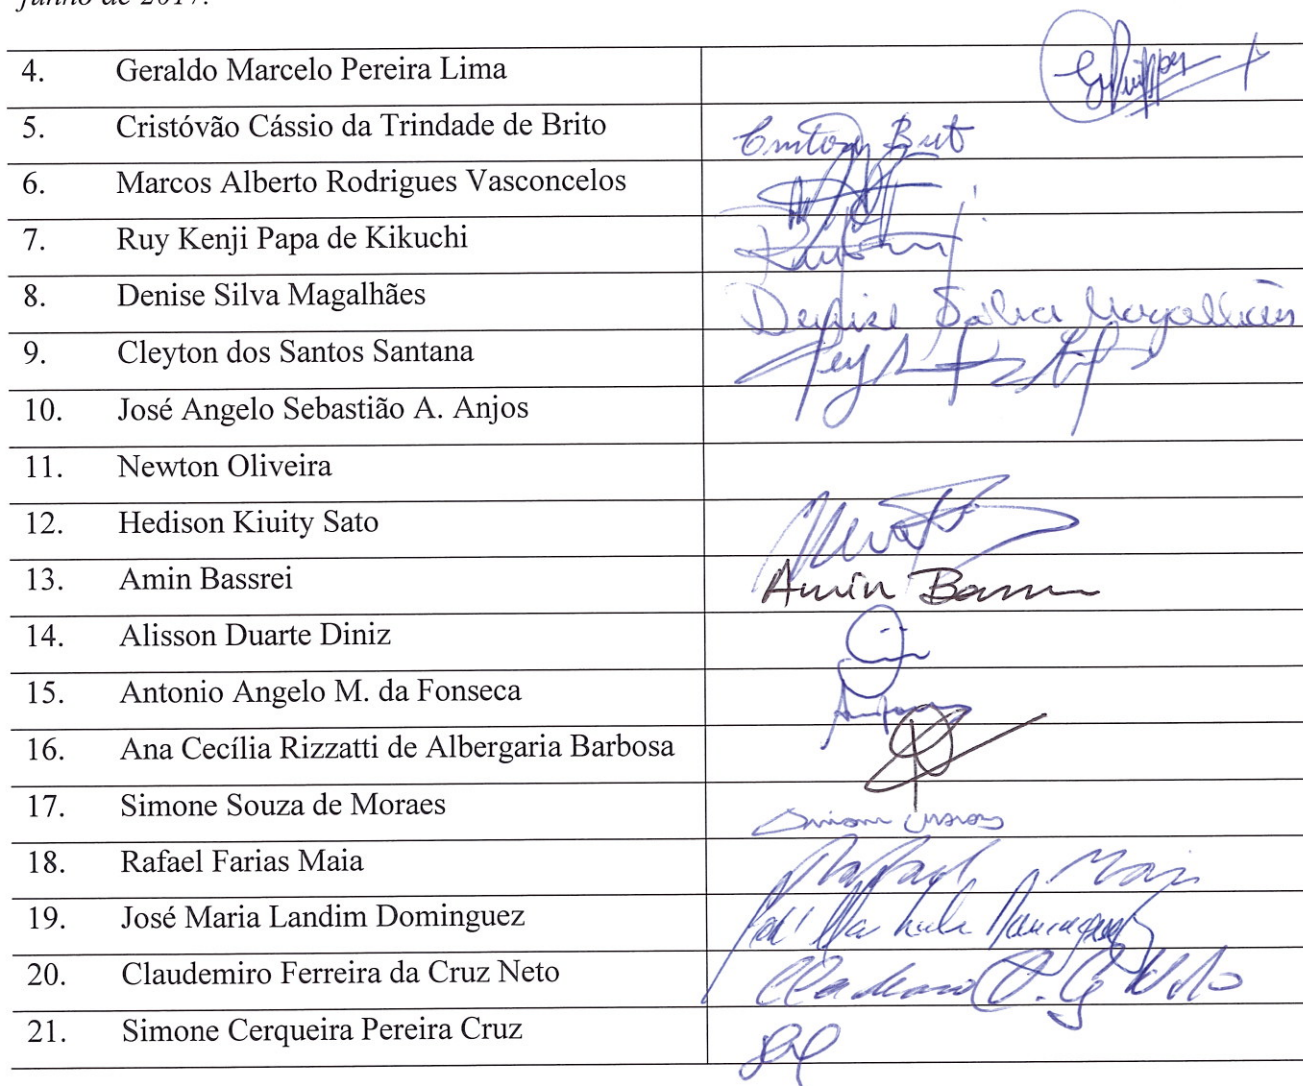 junho de 2017.
4. Geraldo Marcelo Pereira Lima
5. Cristóvão Cássio da Trindade de Brito
6. Marcos Alberto Rodrigues Vasconcelos
7. Ruy Kenji Papa de Kikuchi
8. Denise Silva Magalhães Denise Silva Magalhães
9. Cleyton dos Santos Santana
10. José Angelo Sebastião A. Anjos
11. Newton Oliveira
12. Hedison Kiuity Sato
13. Amin Bassrei Amin
14. Alisson Duarte Diniz
15. Antonio Angelo M. da Fonseca
16. Ana Cecília Rizzatti de Albergaria Barbosa
17. Simone Souza de Moraes
18. Rafael Farias Maia Rafael Maia
19. José Maria Landim Dominguez
20. Claudemiro Ferreira da Cruz Neto
21. Simone Cerqueira Pereira Cruz